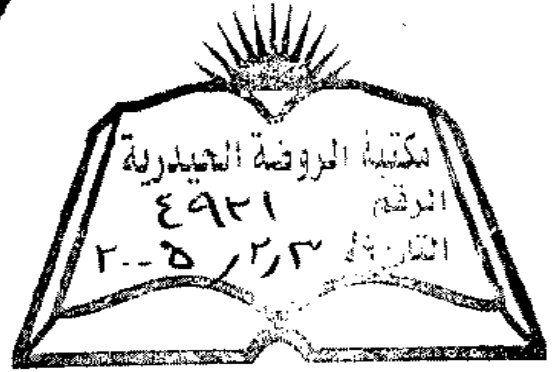 مكتبة الروضة الحيدرية
الرقم ٤٩٢١
التاريخ ٢٠٠٥/٢/٣